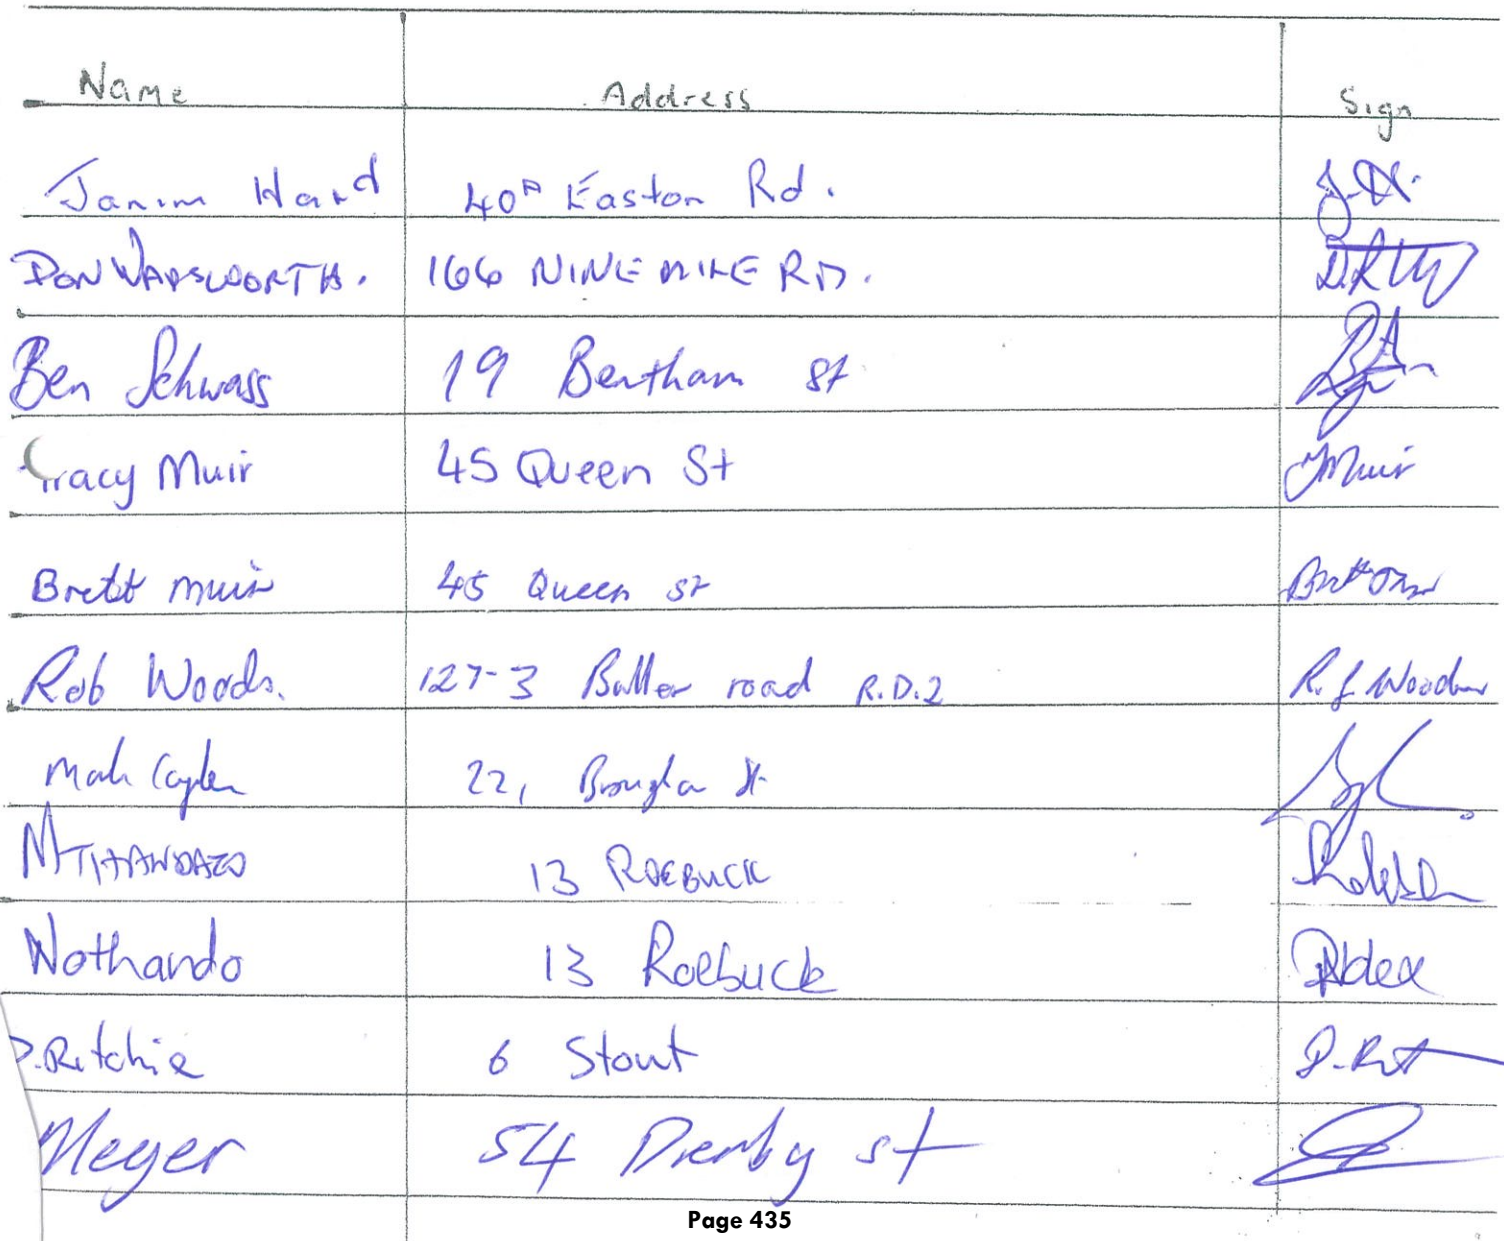 Name Address Sign
Hand 40A Easton Rd.
DON WADSWORTH. 166 NINE MILE RD.
Ben Schwass 19 Bentham St
Tracy Muir 45 Queen St Muir
Brett muir 45 Queen St
Rob Woods. 127-3 Buller road R.D.2 R. J. Woods
22, St
MTHANDAZO 13 ROEBUCK
Nothando 13 Roebuck
P.Ritchie 6 Stout
Meyer 54 Derby st
Page 435